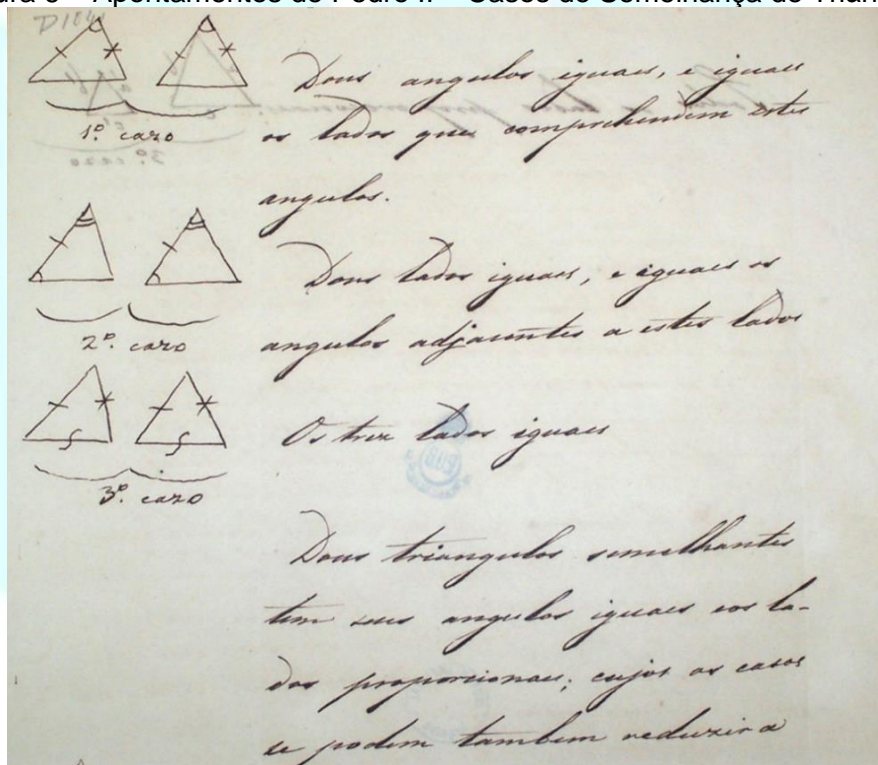 Apontamentos de Pedro II – Casos de Semelhança de Triân
Dous angulos iguaes, e iguaes
1º. cazo
os lados que comprehendem estes
3º. cazo
angulos.
Dous lados iguaes, e iguaes os
2º. cazo
angulos adjacentes a estes lados
Os tres lados iguaes
3º. cazo
Dous triangulos semelhantes
tem seus angulos iguaes e os la-
dos proporcionaes; cujos os casos
se podem tambem reduzir a